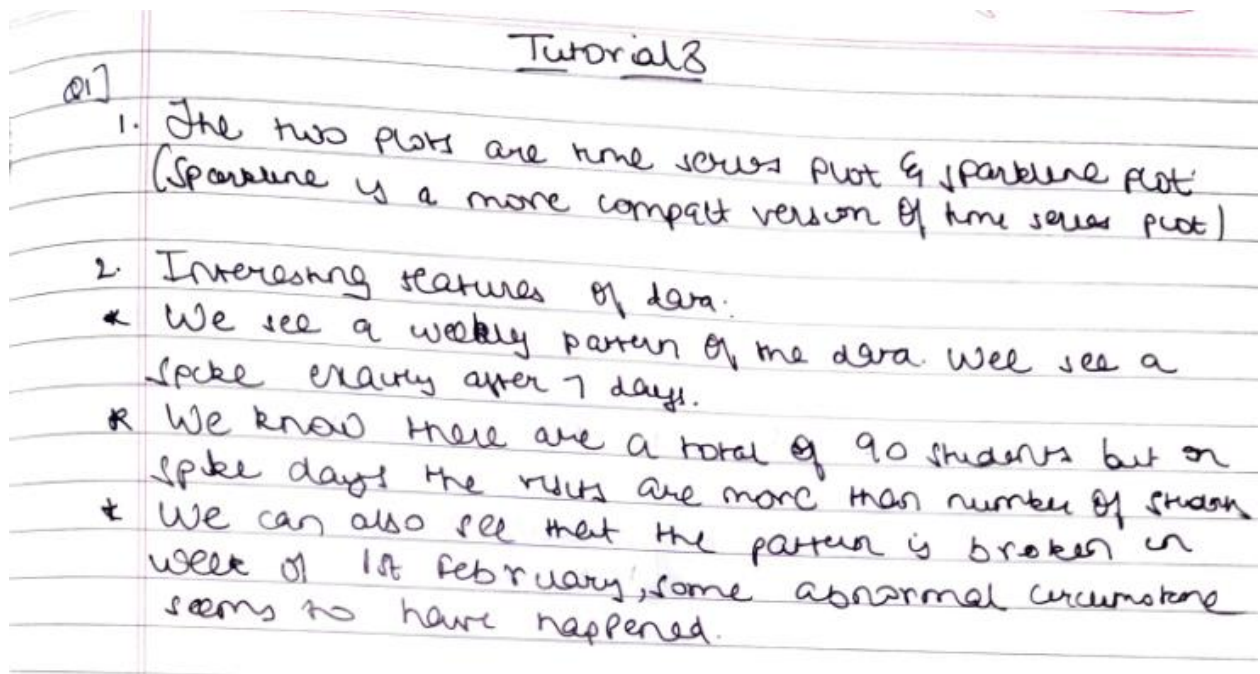 Tutorial 8
Q1]
1. The two plots are time series plot & sparkline plot
(Sparkline is a more compact version of time series plot)
2. Interesting features of data.
* We see a weekly pattern of the data. Wee see a
spike exactly after 7 days.
* We know there are a total of 90 students but on
spike days the visits are more than number of
* We can also see that the pattern is broken in
week of 1st February, some abnormal circumstance
seems to have happened.